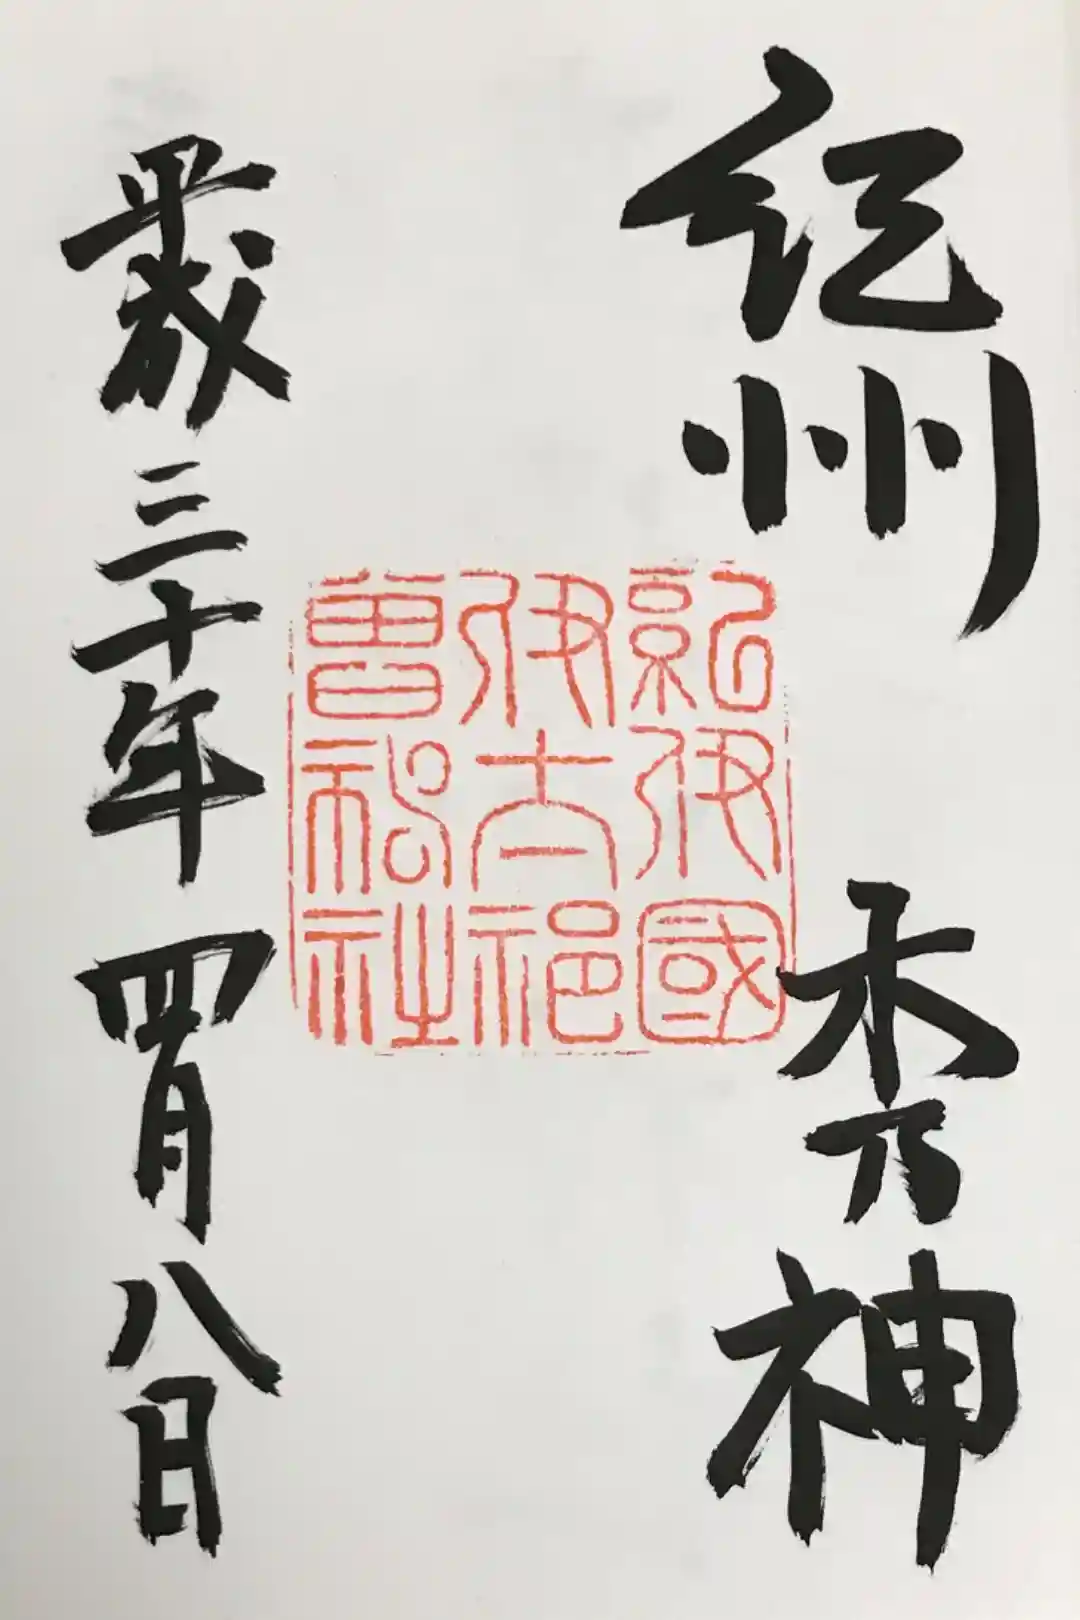 紀州 木乃神
紀伊國
伊太祁
曽神社
平成三十年四月八日